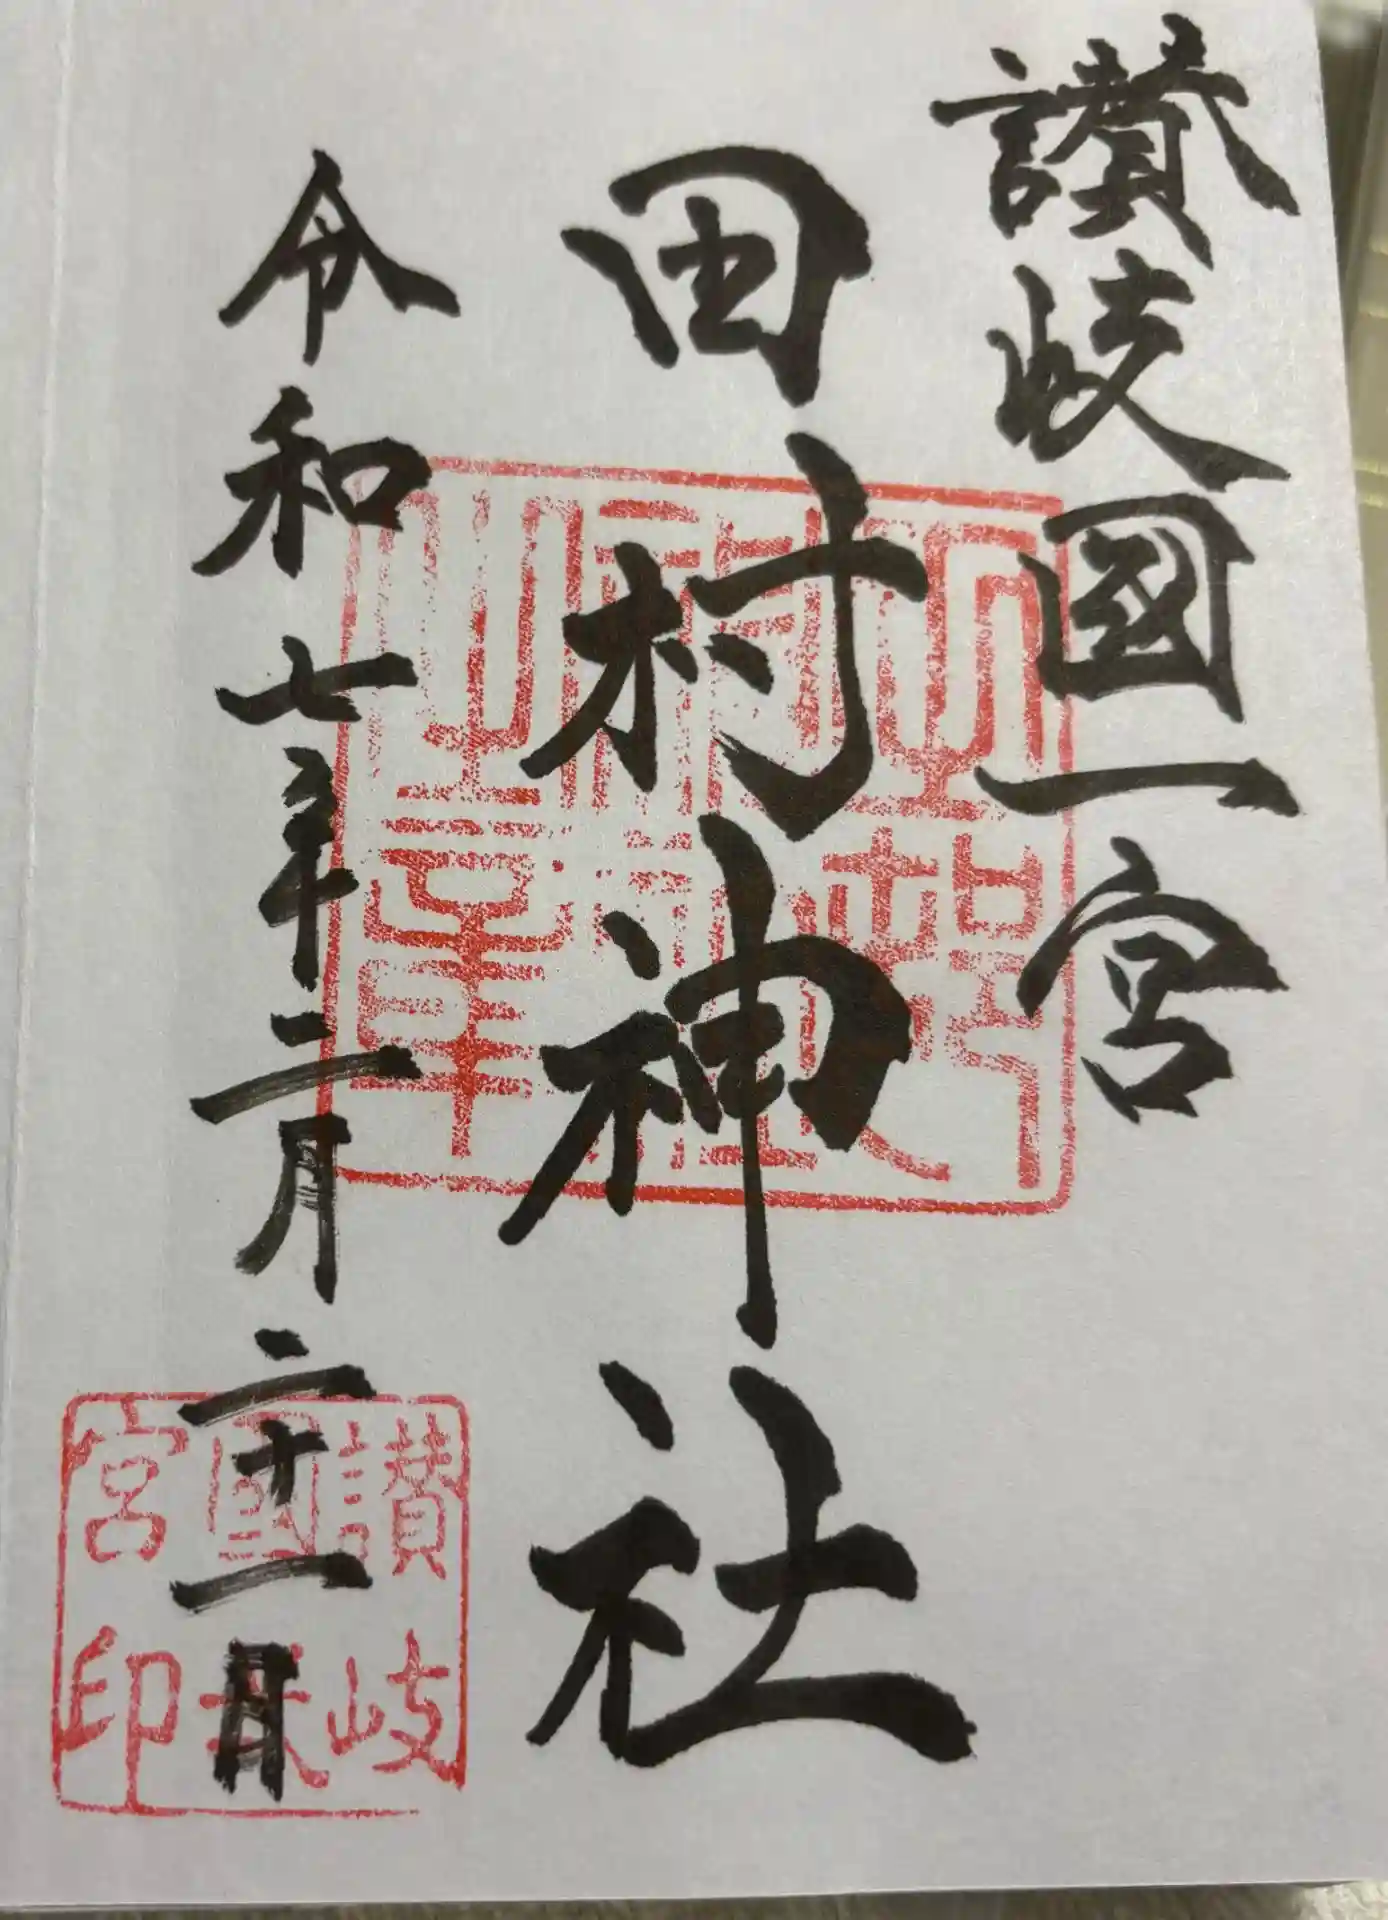 讃岐國一宮
田村神社
令和七年二月二十一日
讃岐
國
宮印